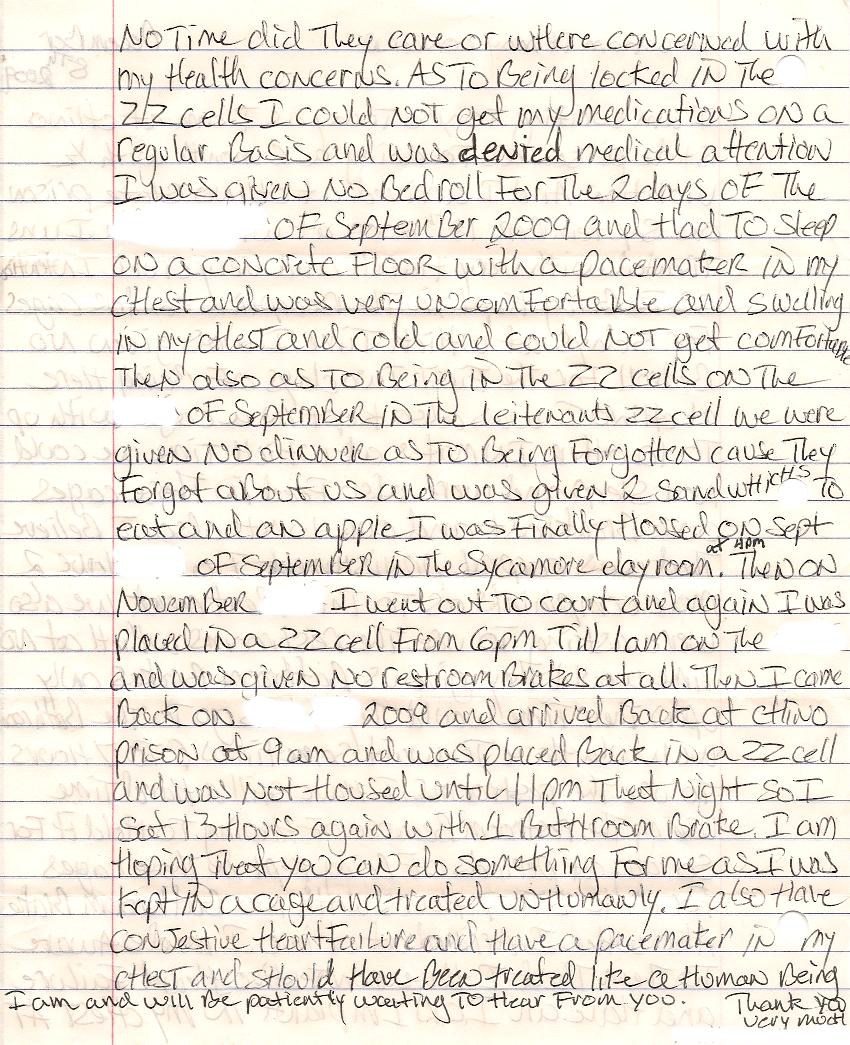 NO Time did They care or wHere concerned with
my Health concerns. AS TO Being locked IN The
ZZ cells I could NOT get my medications ON a
regular Basis and was denied medical attention
I was given NO Bedroll For The 2 days OF The
OF September 2009 and Had TO Sleep
ON a CONCRETE FLOOR with a pacemaker IN my
cHest and was very UNcomFortaBle and swelling
IN my cHEST and cold and could NOT get comFortable
THEN also as TO Being IN THE ZZ cells ON THE
OF SEPTEMBER IN THE leitenants ZZ cell we were
given NO dinner as TO Being Forgotten cause They
Forgot aBout us and was given 2 SandwHicHS TO
eat and an apple I was Finally Housed ON Sept
OF SEPTEMBER IN THE Sycamore dayroom. at 4pm THEN ON
NovemBer I went out TO court and again I was
placed IN a ZZ cell From 6pm Till 1am ON The
and was given NO restroom Brakes at all. THEN I came
Back ON 2009 and arrived Back at CHINO
prison at 9am and was placed Back IN a ZZ cell
and was NOT Housed UNTIL 11pm That Night so I
Sat 13 Hours again with 1 BatHroom Brake. I am
Hoping THat you can do something For me as I was
Kept IN a cage and treated UNHumanly. I also Have
CONJestive Heart Failure and Have a pacemaker IN my
cHEST and sHould Have Been treated like a Human Being
I am and will Be patiently waiting TO Hear From YOU. Thank YOU
very mucH